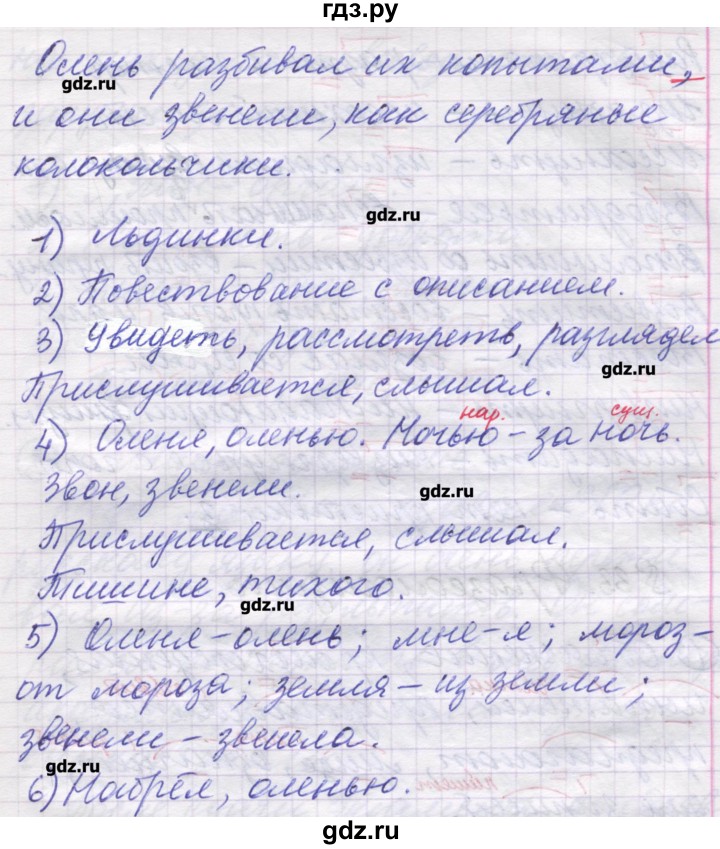 гдз.ру
Олень разбивал их копытами,
gdz.ru
и они звенели, как серебряные
колокольчики.
gdz.ru
1) Льдинки.
2) Повествование с описанием.
3) Увидеть, рассмотреть, разглядел
gdz.ru
Прислушивается, слышал.
нар. сущ.
4) Оленя, оленью. Ночью – за ночь.
Звон, звенели.
gdz.ru
Прислушивается, слышал.
Тишине, тихого.
gdz.ru
5) Оленя – олень; мне – я; мороз –
от мороза; земля – из земли;
звенели – звенела.
gdz.ru
6) Набрёл, оленью.
gdz.ru